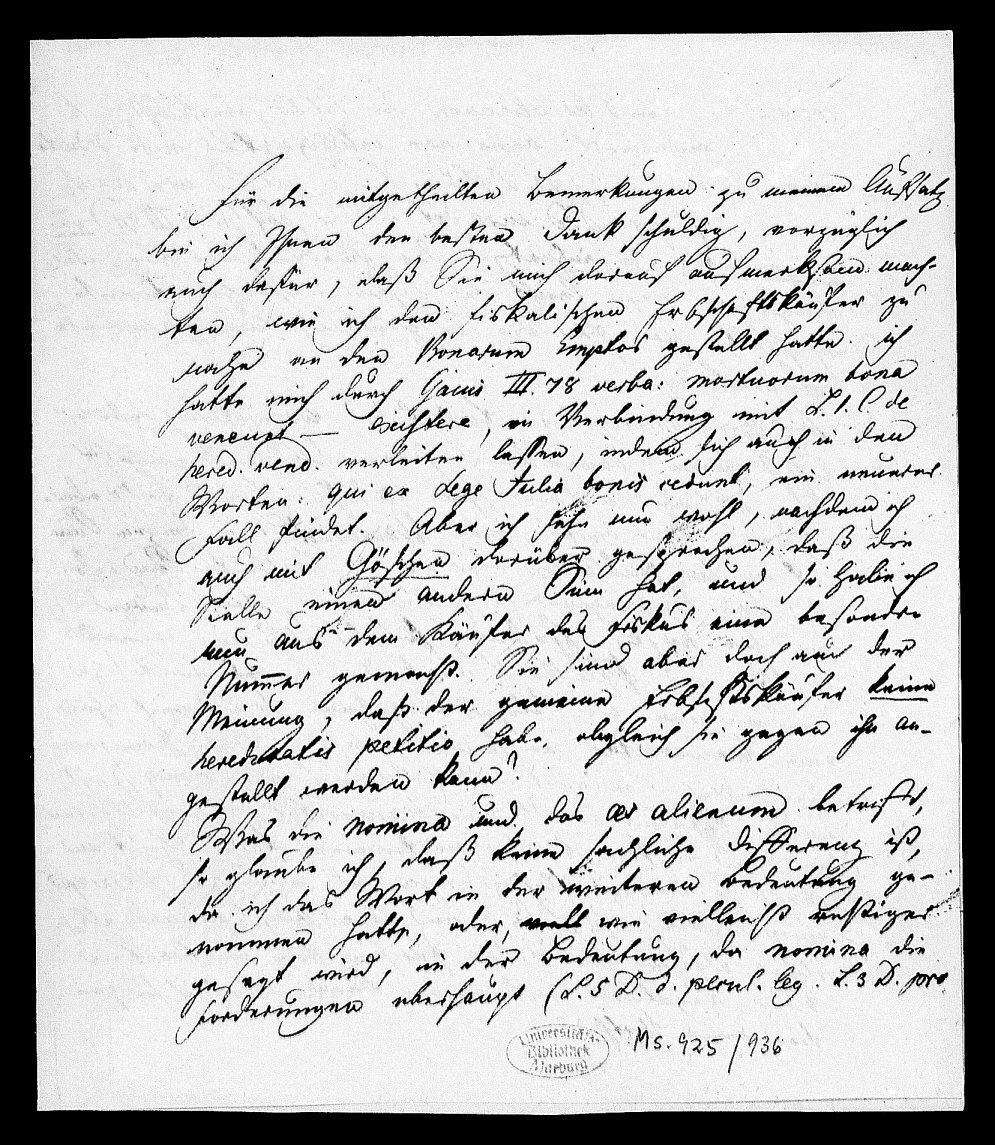 Für die mitgetheilten Bemerkungen zu meinem Aufsatz
bin ich Ihnen den besten Dank schuldig, vorzüglich
auch dafür, daß Sie mich darauf aufmerksam mach-
ten, wie ich den fiskalischen Erbschaftskäufer zu
nahe an den Bonorum Emptor gestellt hatte. ich
hatte mich durch Gaius III. 78 verba: mortuorum bona
veneunt — existere, in Verbindung mit L. 1. C. de
hered. vend. verleiten lassen, indem sich auch in den
Worten: qui ex Lege Julia bonis cedunt, ein neuerer
Fall findet. Aber ich sehe nun wohl, nachdem ich
auch mit Göschen darüber gesprochen, daß die
Stelle einen andern Sinn hat, und so habe ich
nun aus dem Käufer des Fiskus eine besondre
Nummer gemacht. Sie sind aber doch auch der
Meinung, daß der gemeine Erbschaftskäufer keine
hereditatis petitio habe, obgleich sie gegen ihn an-
gestellt werden kann?
Was die nomina und das aes alienum betrifft,
so glaube ich, daß keine sachliche Differenz ist,
da ich das Wort in der weiteren Bedeutung ge-
nommen hatte, oder, wie vielleicht richtiger
gesagt wird, in der Bedeutung, da nomina die
Forderungen überhaupt (L. 5 D. d. pecul. leg. L. 3 D. pro
Universitäts-
Bibliothek
Marburg
Ms. 925/936